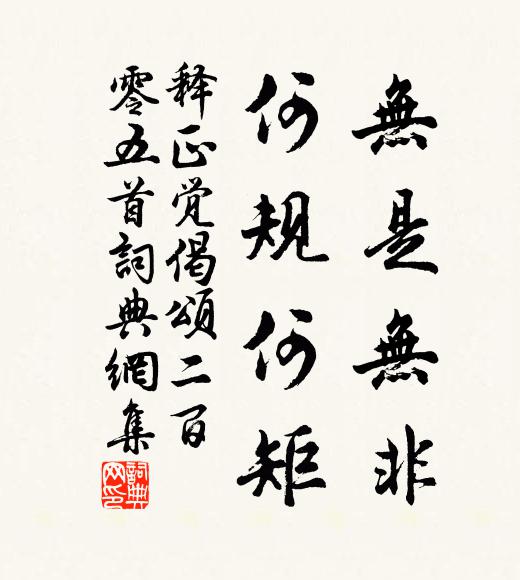 無是無非
何規何矩
释正覺偈頌二百
零五首詞典網集
詞典网印